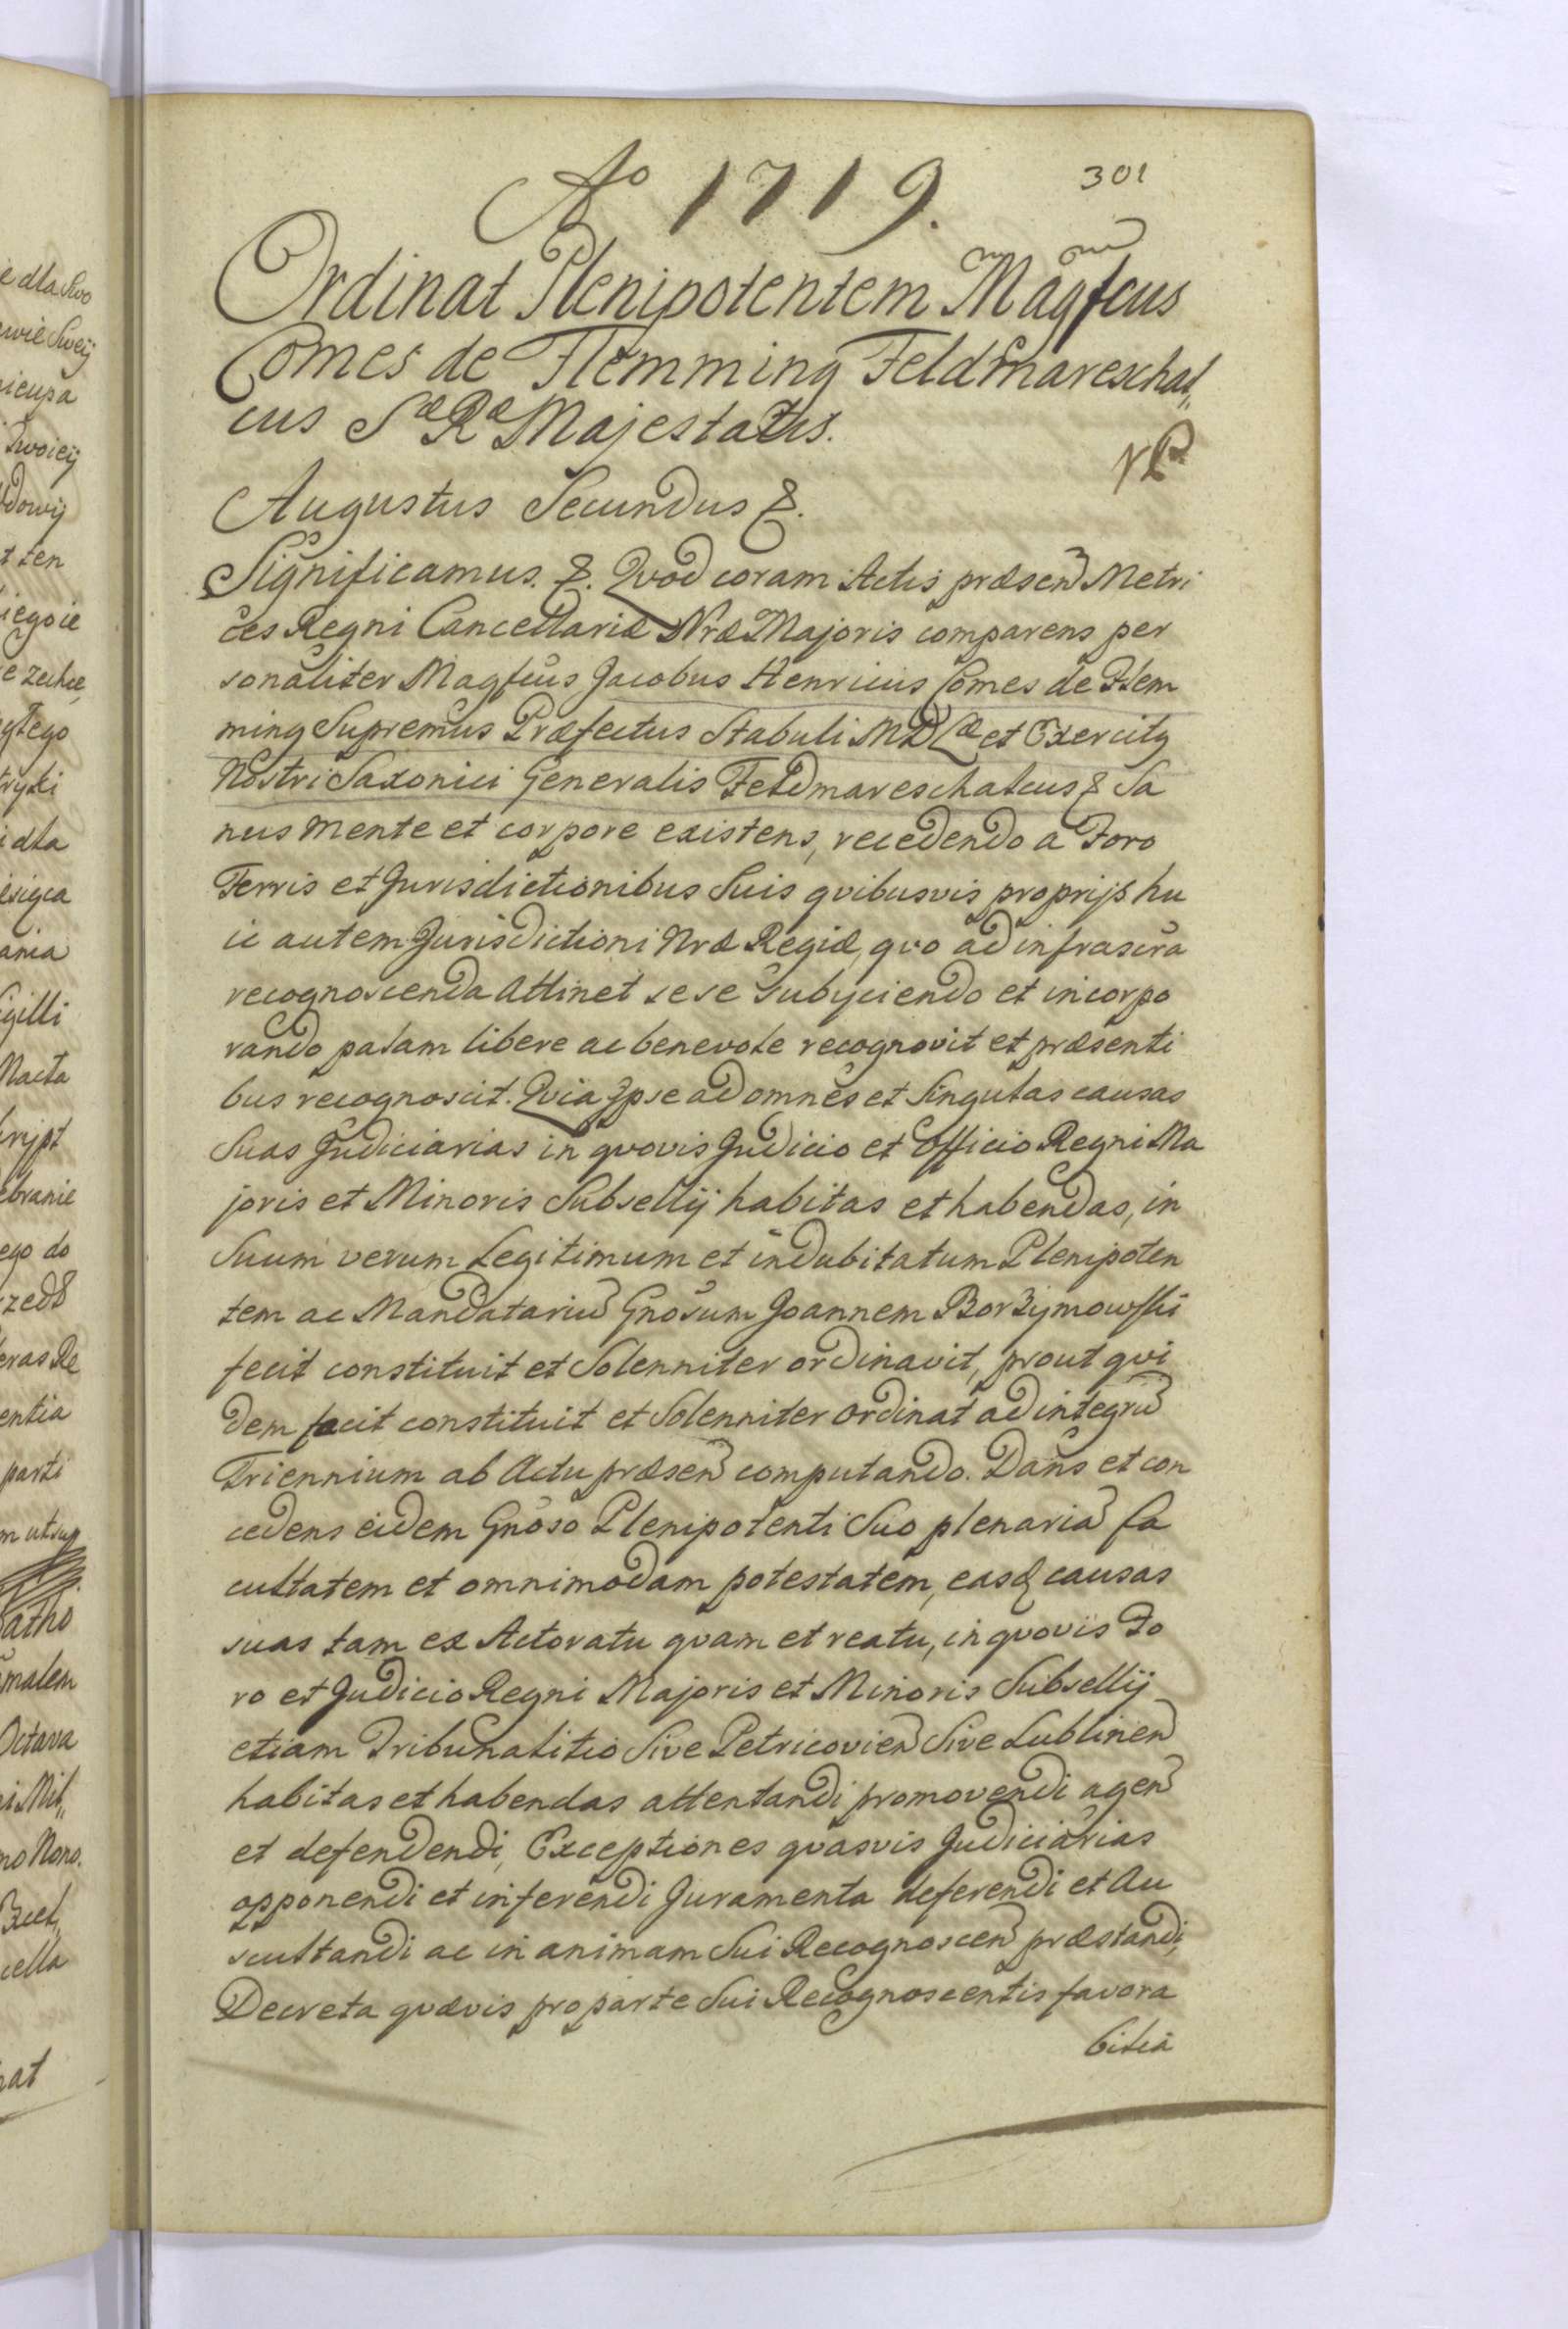 Aᵒ 1719.
301
Ordinat Plenipotentem Magfcus
Comes de Flemming Feldmareschal„
cus Sæ Ræ Majestatis.
Augustus Secundus &.
Significamus. &. Qvod coram Actis præsen Metri
ces Regni Cancellariæ Nræ Majoris comparens per
sonaliter Magfcus Jacobus Henricus Comes de Flem
ming Supremus Præfectus Stabuli M D Læ et Exercitg
Nostri Saxonici Generalis Feldmareschalcus & Sa
nus mente et corpore existens, recedendo a Foro
Terris et Jurisdictionibus Suis qvibusvis proprijs hu
ic autem Jurisdictioni Nræ Regiæ, qvo ad infrascra
recognoscenda Attinet sese subyciendo et incorpo
rando palam libere ac benevole recognovit et præsenti
bus recognoscit. Qvia Ipse ad omnes et Singulas causas
Suas Judiciarias in qvovis Judicio et Officio Regni Ma
joris et Minoris Subsellij habitas et habendas, in
Suum verum Legitimum et indubitatum Plenipoten
tem ac Mandatariu Gnosum Joannem Borzymowski
fecit constituit et Solenniter ordinavit, prout qvi
dem facit constituit et Solenniter ordinat ad integru
Triennium ab Actu præsen computando. Dans et con
cedens eidem Gnoso Plenipotenti Suo plenaria fa
cultatem et omnimodam potestatem, easq causas
suas tam ex Actoratu qvam et reatu, in qvovis Fo
ro et Judicio Regni Majoris et Minoris Subsellij
etiam Tribunalitio Sive Petricovien Sive Lublinen
habitas et habendas attentandi promovendi agen
et defendendi, Exceptiones qvasvis Judiciarias
opponendi et inferendi Juramenta deferendi et Au
scultandi ac in animam Sui Recognoscen præstandi,
Decreta qvævis pro parte Sui Recognoscentis favora
bilia